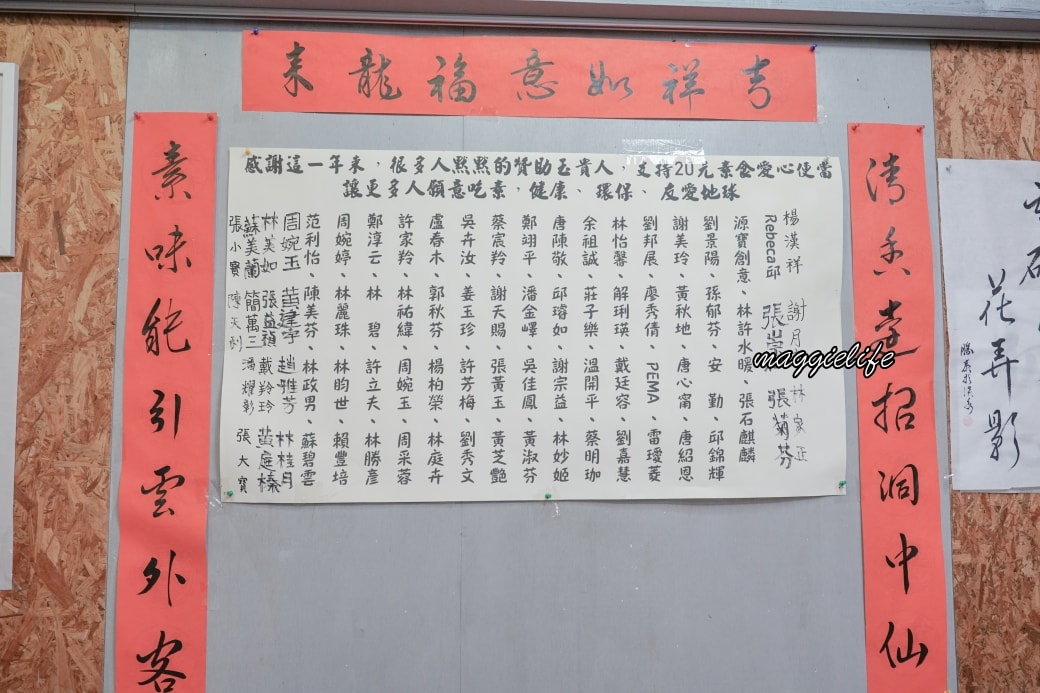 吉祥如意福龍来
清香遠招洞中仙
素味能引雲外客
感謝這一年來，很多人默默的贊助玉貴人，支持20元素食愛心便當
讓更多人願意吃素，健康、環保、友愛地球
楊漢祥 謝月 林家正
Rebeca邱 張 張菊芬
源寶創意、林許水暖、張石麒麟
劉景陽、孫郁芬、安 勤、邱錦輝
謝美玲、黃秋地、唐心甯、唐紹恩
劉邦展、廖秀倩、PEMA、雷璦菱
林怡馨、解琍瑛、戴廷容、劉嘉慧
余祖誠、莊子樂、溫開平、蔡明珈
唐陳敬、邱璿如、謝宗益、林妙姬
鄭翊平、潘金嶧、吳佳鳳、黃淑芬
蔡宸羚、謝天賜、張黃玉、黃芝艷
吳卉汝、姜玉珍、許芳梅、劉秀文
盧春木、郭秋芬、楊柏榮、林庭卉
許家羚、林祐緯、周婉玉、周采蓉
鄭淳云、林 碧、許立夫、林勝彥
周婉婷、林麗珠、林昀世、賴豐培
范利怡、陳美芬、林政男、蘇碧雲
周婉玉 黃建寧 趙雅芬 林桂月
林美如 張益禎 戴羚玲 黃庭榛
蘇美蘭 簡萬三 潘耀彰 張大寶
張小寶 陳天
花弄影
maggielife